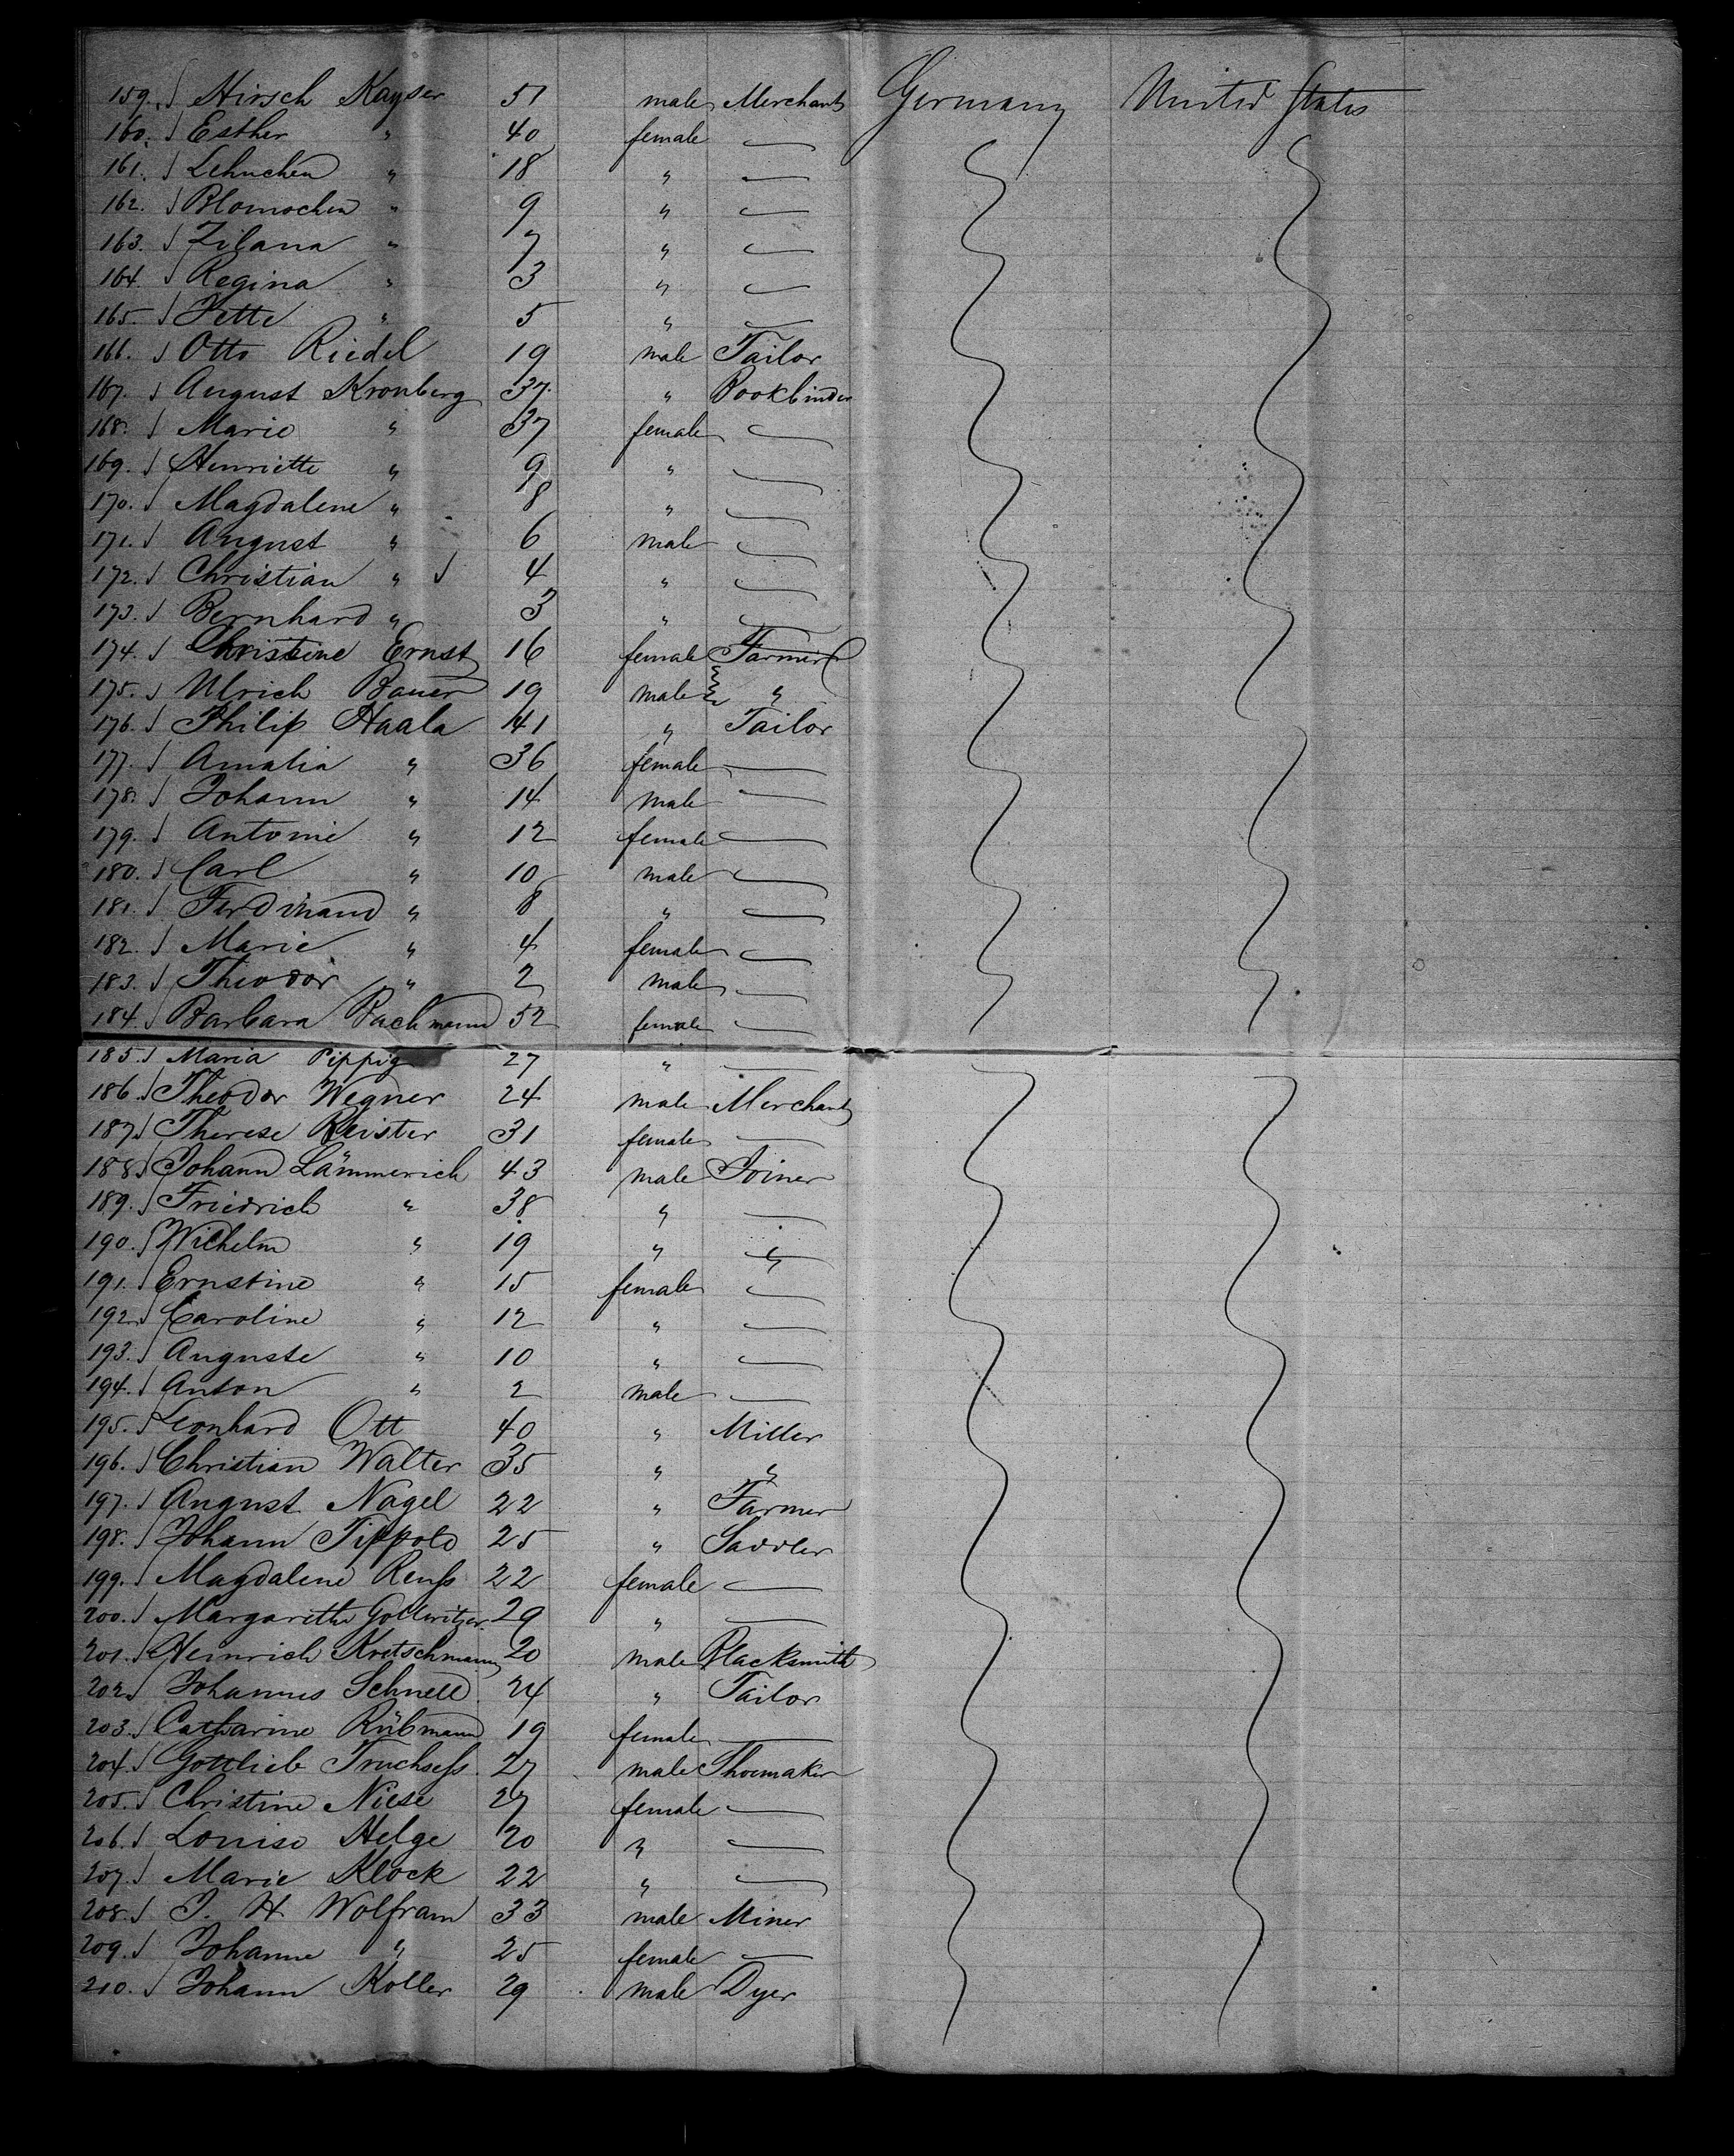 159. Hirsch Kayser 51 male Merchant Germany United States
160. Esther " 40 female —
161. Lehnchen " 18 " —
162. Blomochen " 9 " —
163. Zilana " 7 " —
164. Regina " 3 " —
165. Jette " 5 " —
166. Otto Riedel 19 male Tailor
167. August Kronberg 37 " Bookbinder
168. Marie " 37 female —
169. Henriette " 9 " —
170. Magdalene " 8 " —
171. August " 6 male —
172. Christian " 4 " —
173. Bernhard " 3 " —
174. Christine Ernst 16 female Farmer
175. Ulrich Bauer 19 male "
176. Philip Haala 41 " Tailor
177. Amalia " 36 female —
178. Johann " 14 male —
179. Antonie " 12 female —
180. Carl " 10 male —
181. Ferdinand " 8 " —
182. Marie " 4 female —
183. Theodor " 2 male —
184. Barbara Bachmann 52 female —
185. Maria Pippig 27 " —
186. Theodor Wegner 24 male Merchant
187. Therese Reister 31 female —
188. Johann Lämmerich 43 male Joiner
189. Friedrich " 38 " —
190. Wilhelm " 19 " "
191. Ernstine " 15 female —
192. Caroline " 12 " —
193. Auguste " 10 " —
194. Anton " 2 male —
195. Leonhard Ott 40 " Miller
196. Christian Walter 35 " "
197. August Nagel 22 " Farmer
198. Johann Tippold 25 " Saddler
199. Magdalene Reuſs 22 female —
200. Margarethe Gollwitzer 29 " —
201. Heinrich Kretschmann 20 male Blacksmith
202. Johannes Schnell 24 " Tailor
203. Catharine Rübmann 19 female —
204. Gottlieb Truchseſs 27 male Shoemaker
205. Christine Niese 27 female —
206. Louise Helge 20 " —
207. Marie Klock 22 " —
208. J. H. Wolfram 33 male Miner
209. Johanne " 25 female —
210. Johann Koller 29 male Dyer